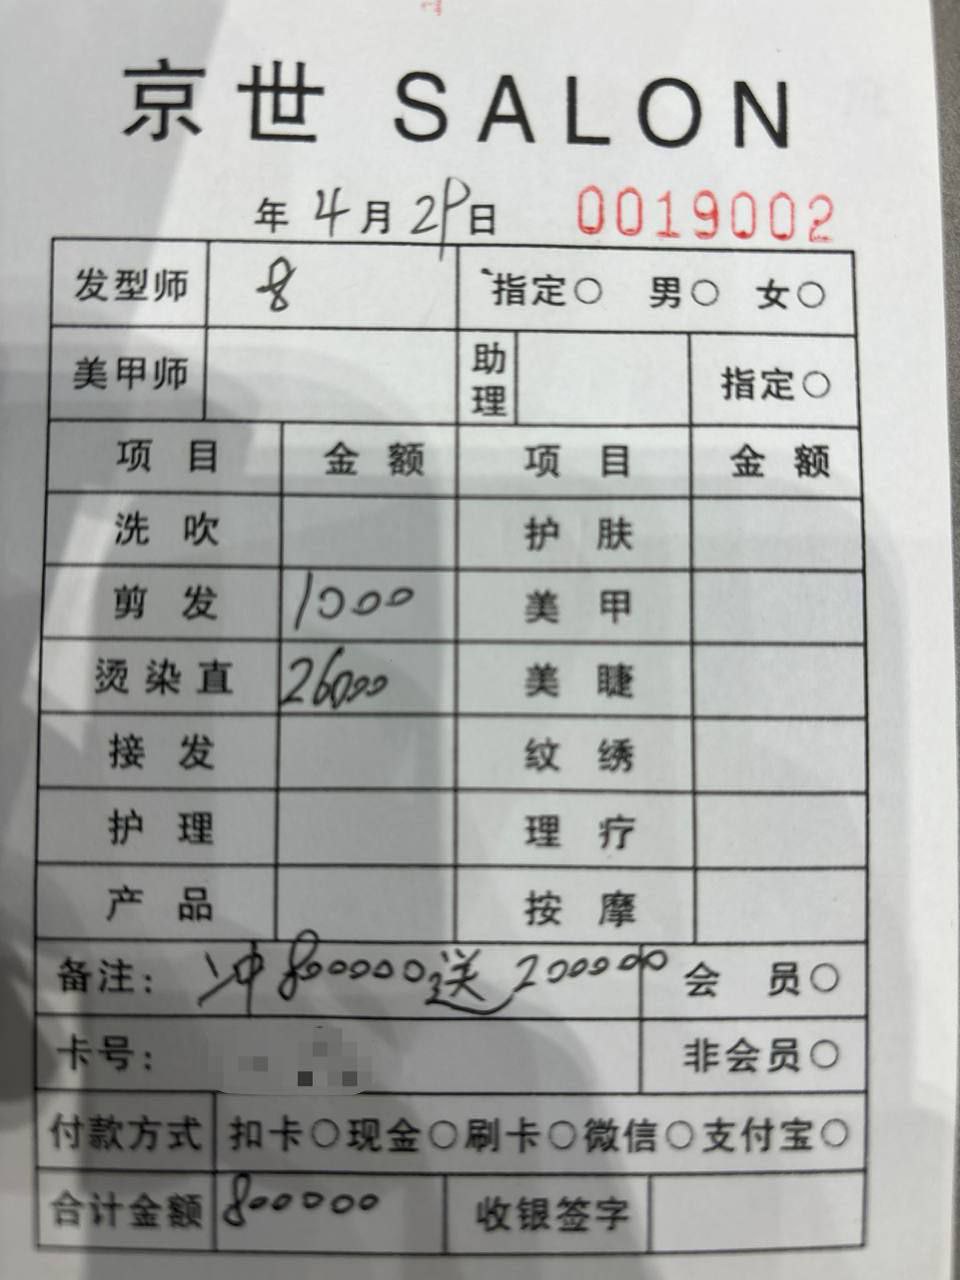 京世 SALON
年 4月 29日 0019002
发型师 8 指定○ 男○ 女○
美甲师 助理 指定○
项目 金额 项目 金额
洗吹 护肤
剪发 1000 美甲
烫染直 26000 美睫
接发 纹绣
护理 理疗
产品 按摩
备注: 冲800000送200000 会员○
卡号: 非会员○
付款方式 扣卡○现金○刷卡○微信○支付宝○
合计金额 800000 收银签字